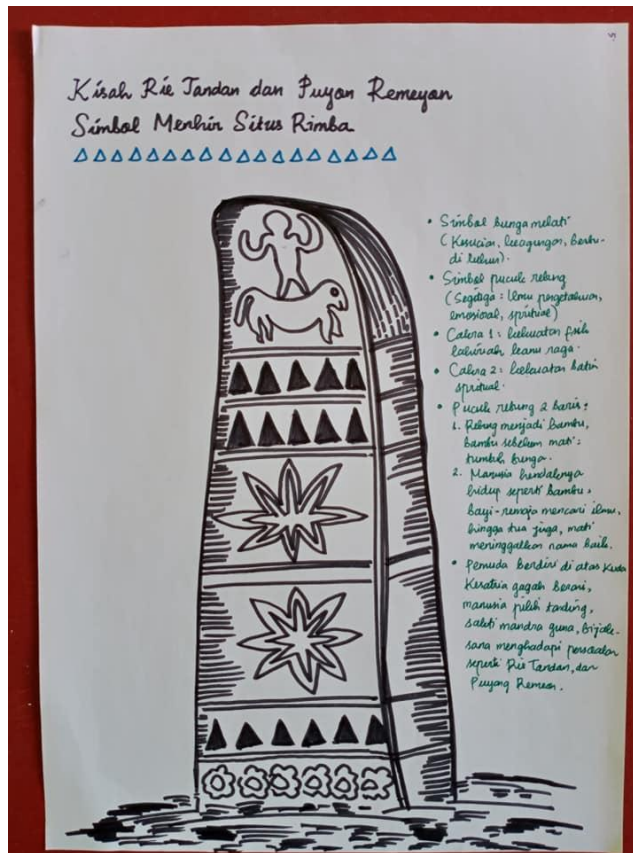 Kisah Rie Tandan dan Puyan Remeyan
Simbol Menhir Situs Rimba
• Simbol bunga melati
(Kesucian, keagungan, berbu-
di luhur).
• Simbol pucuk rebung
(Segitiga: Ilmu pengetahuan,
emosional, spritual)
• Cakra 1: kekuatan fisik
lahiriah kanu raga.
• Cakra 2: kekuatan batin
spritual.
• Pucuk rebung 2 baris:
1. Rebung menjadi bambu,
bambu sebelum mati:
tumbuh bunga.
2. Manusia hendaknya
hidup seperti bambu,
bayi-remaja mencari ilmu,
hingga tua juga, mati
meninggalkan nama baik.
• Pemuda berdiri di atas Kuda
Kesatria gagah berani,
manusia pilih tanding,
sakti mandra guna, bijak-
sana menghadapi persoalan
seperti Rie Tandan, dan
Puyang Remeon.